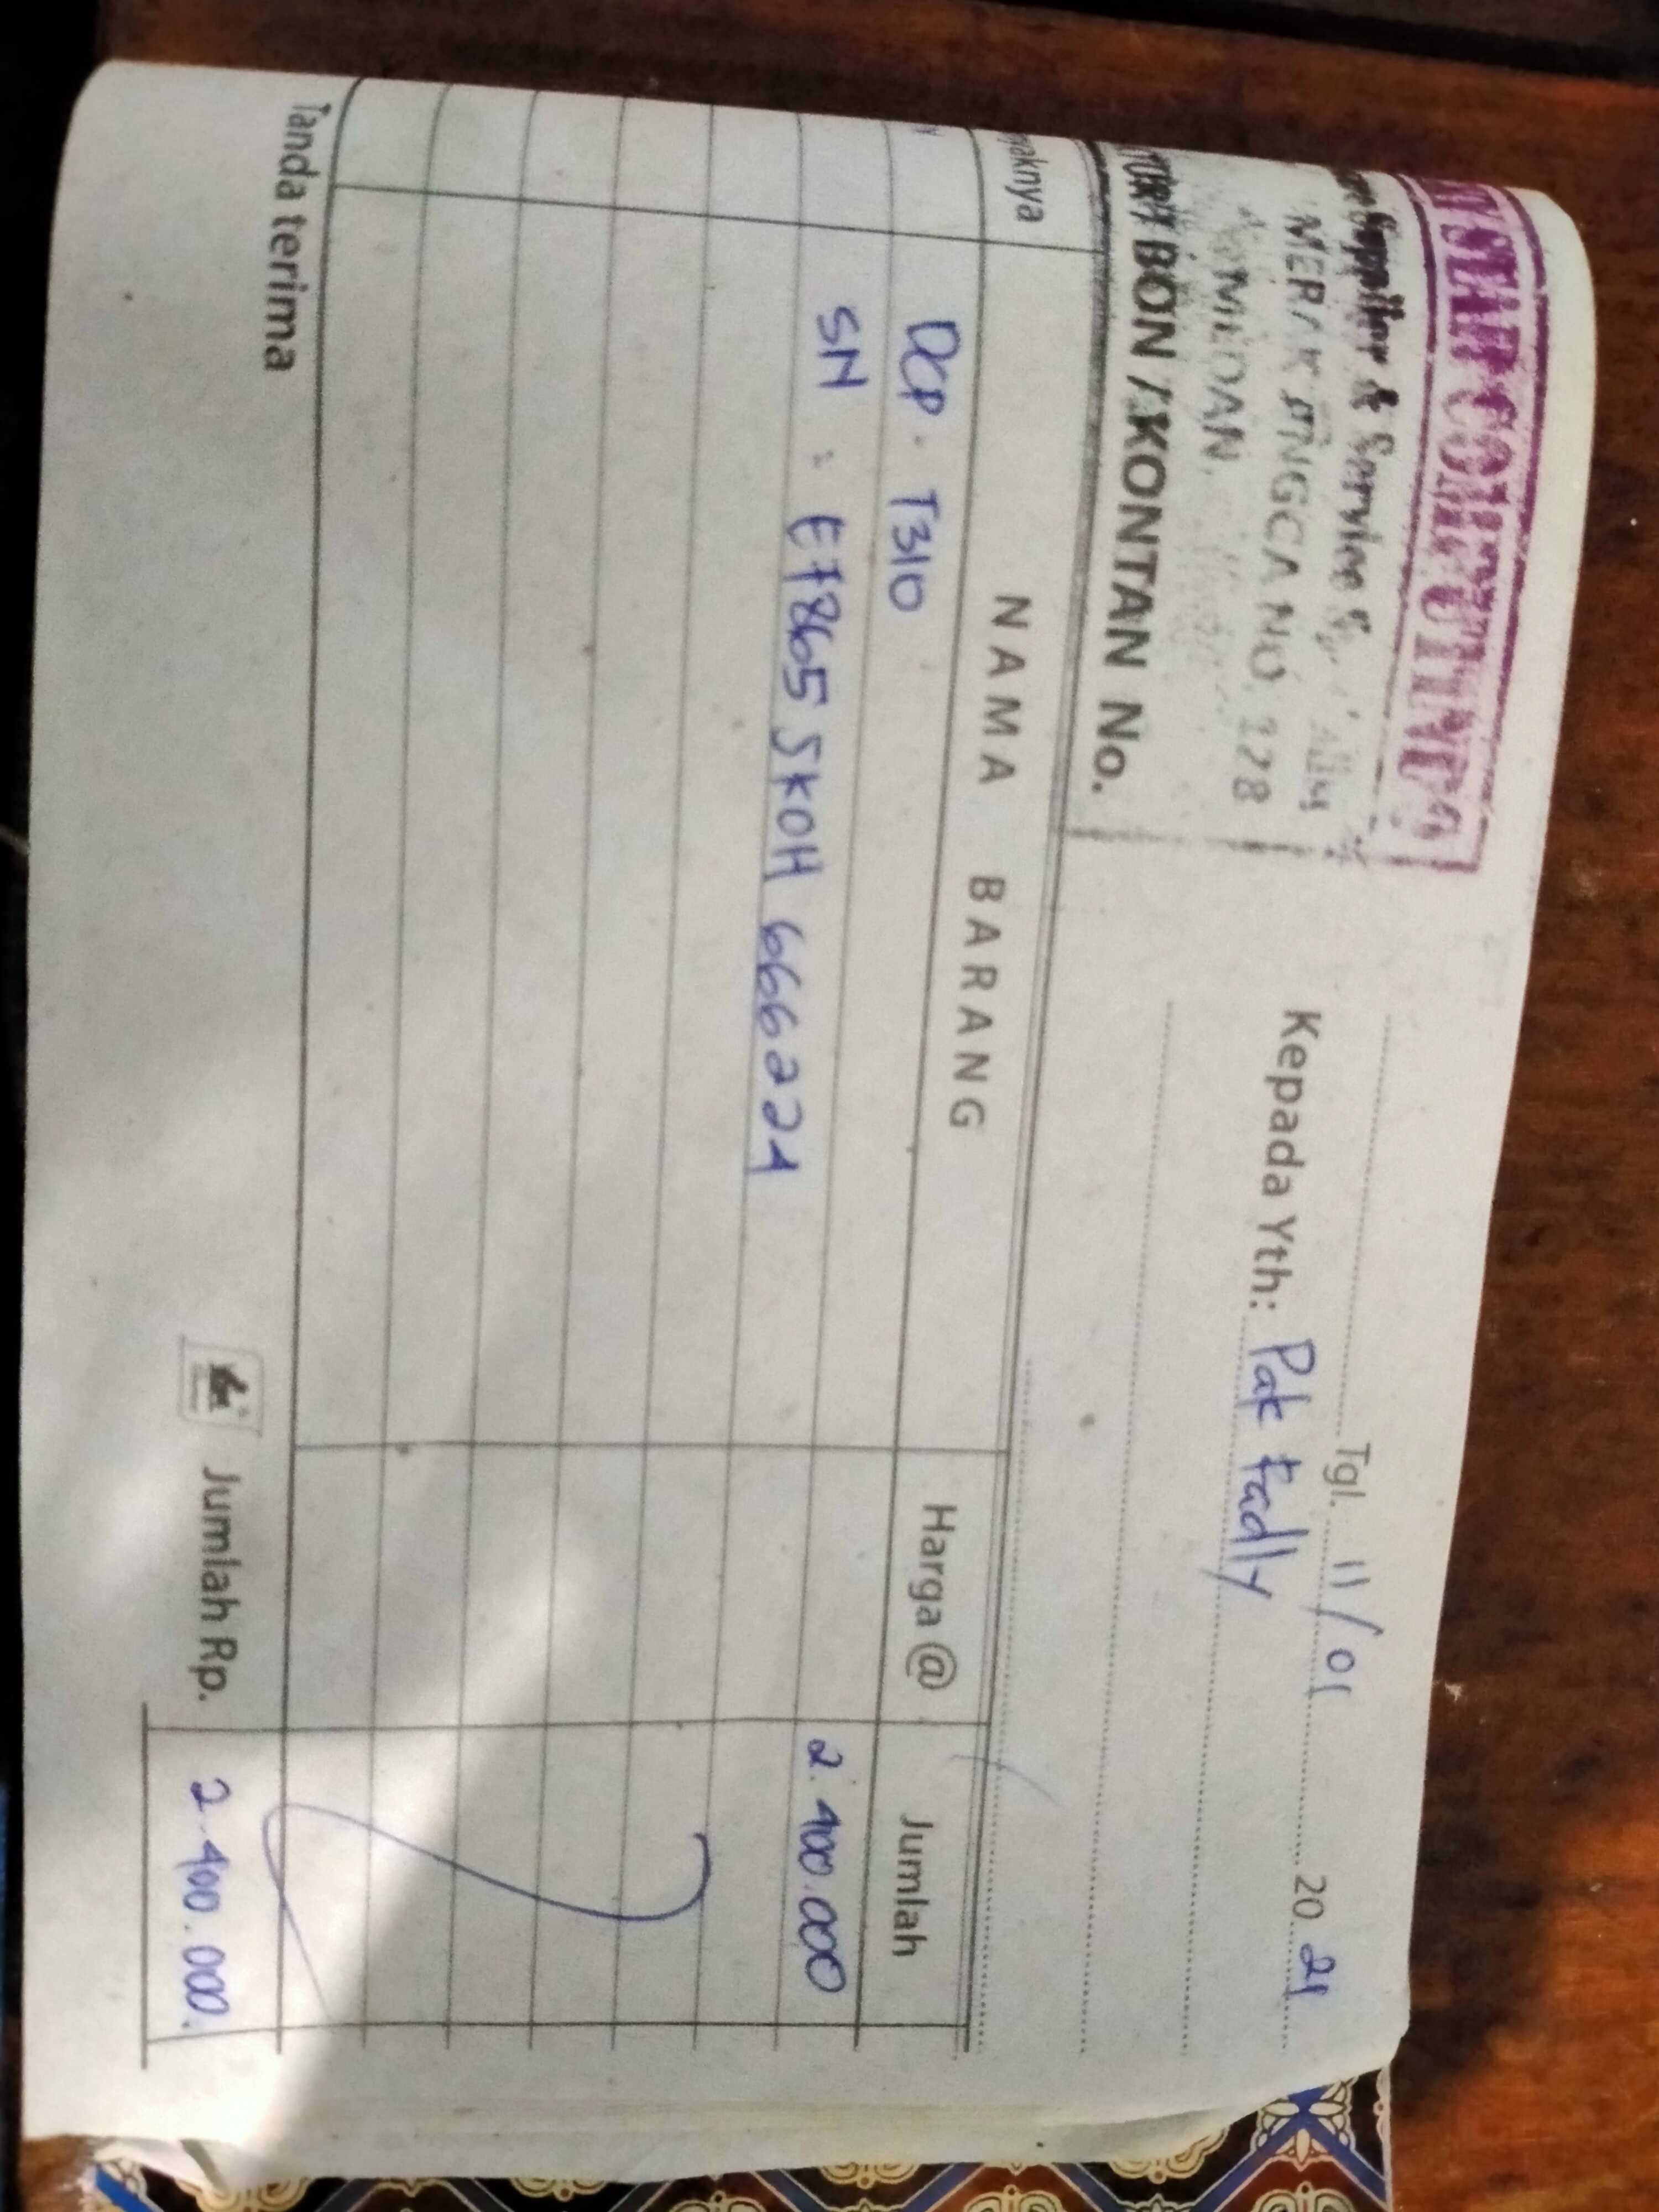 STAR COMPUTING
Supplier & Service
MERAK JINGGA NO. 128
MEDAN.
BON / KONTAN No.
Tgl. 11/01 20 21
Kepada Yth: Pak Fadly
NAMA BARANG
Harga @
Jumlah
DCP. T310
2.400.000
SN : E78655K0H 666224
Tanda terima
Jumlah Rp.
2.400.000.